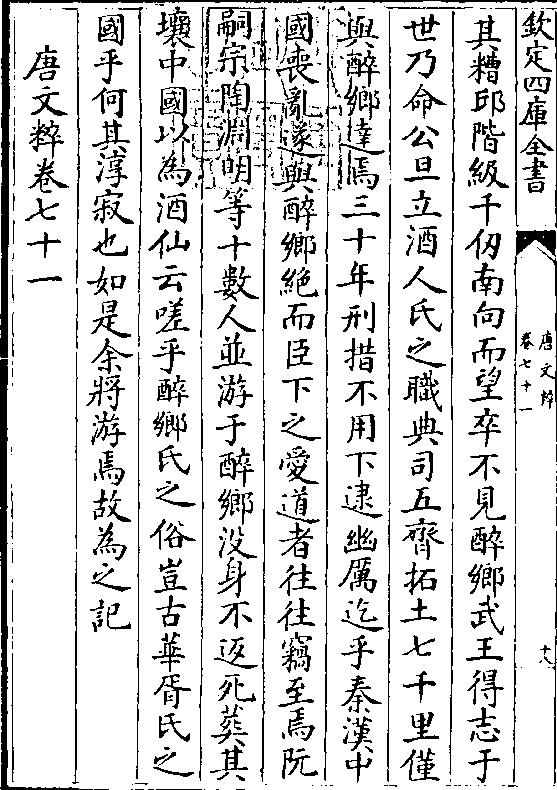 欽定四庫全書
唐文粹
卷七十一
十八
其糟邱階級千仭南向而望卒不見醉鄉武王得志于
世乃命公旦立酒人氏之職典司五齊拓土七千里僅
與醉鄉達焉三十年刑措不用下逮幽厲迄乎秦漢中
國喪亂遂與醉鄉絶而臣下之愛道者往往竊至焉阮
嗣宗陶淵明等十數人並游于醉鄉没身不返死葬其
壤中國以為酒仙云嗟乎醉鄉氏之俗豈古華胥氏之
國乎何其淳寂也如是余將游焉故為之記
唐文粹卷七十一